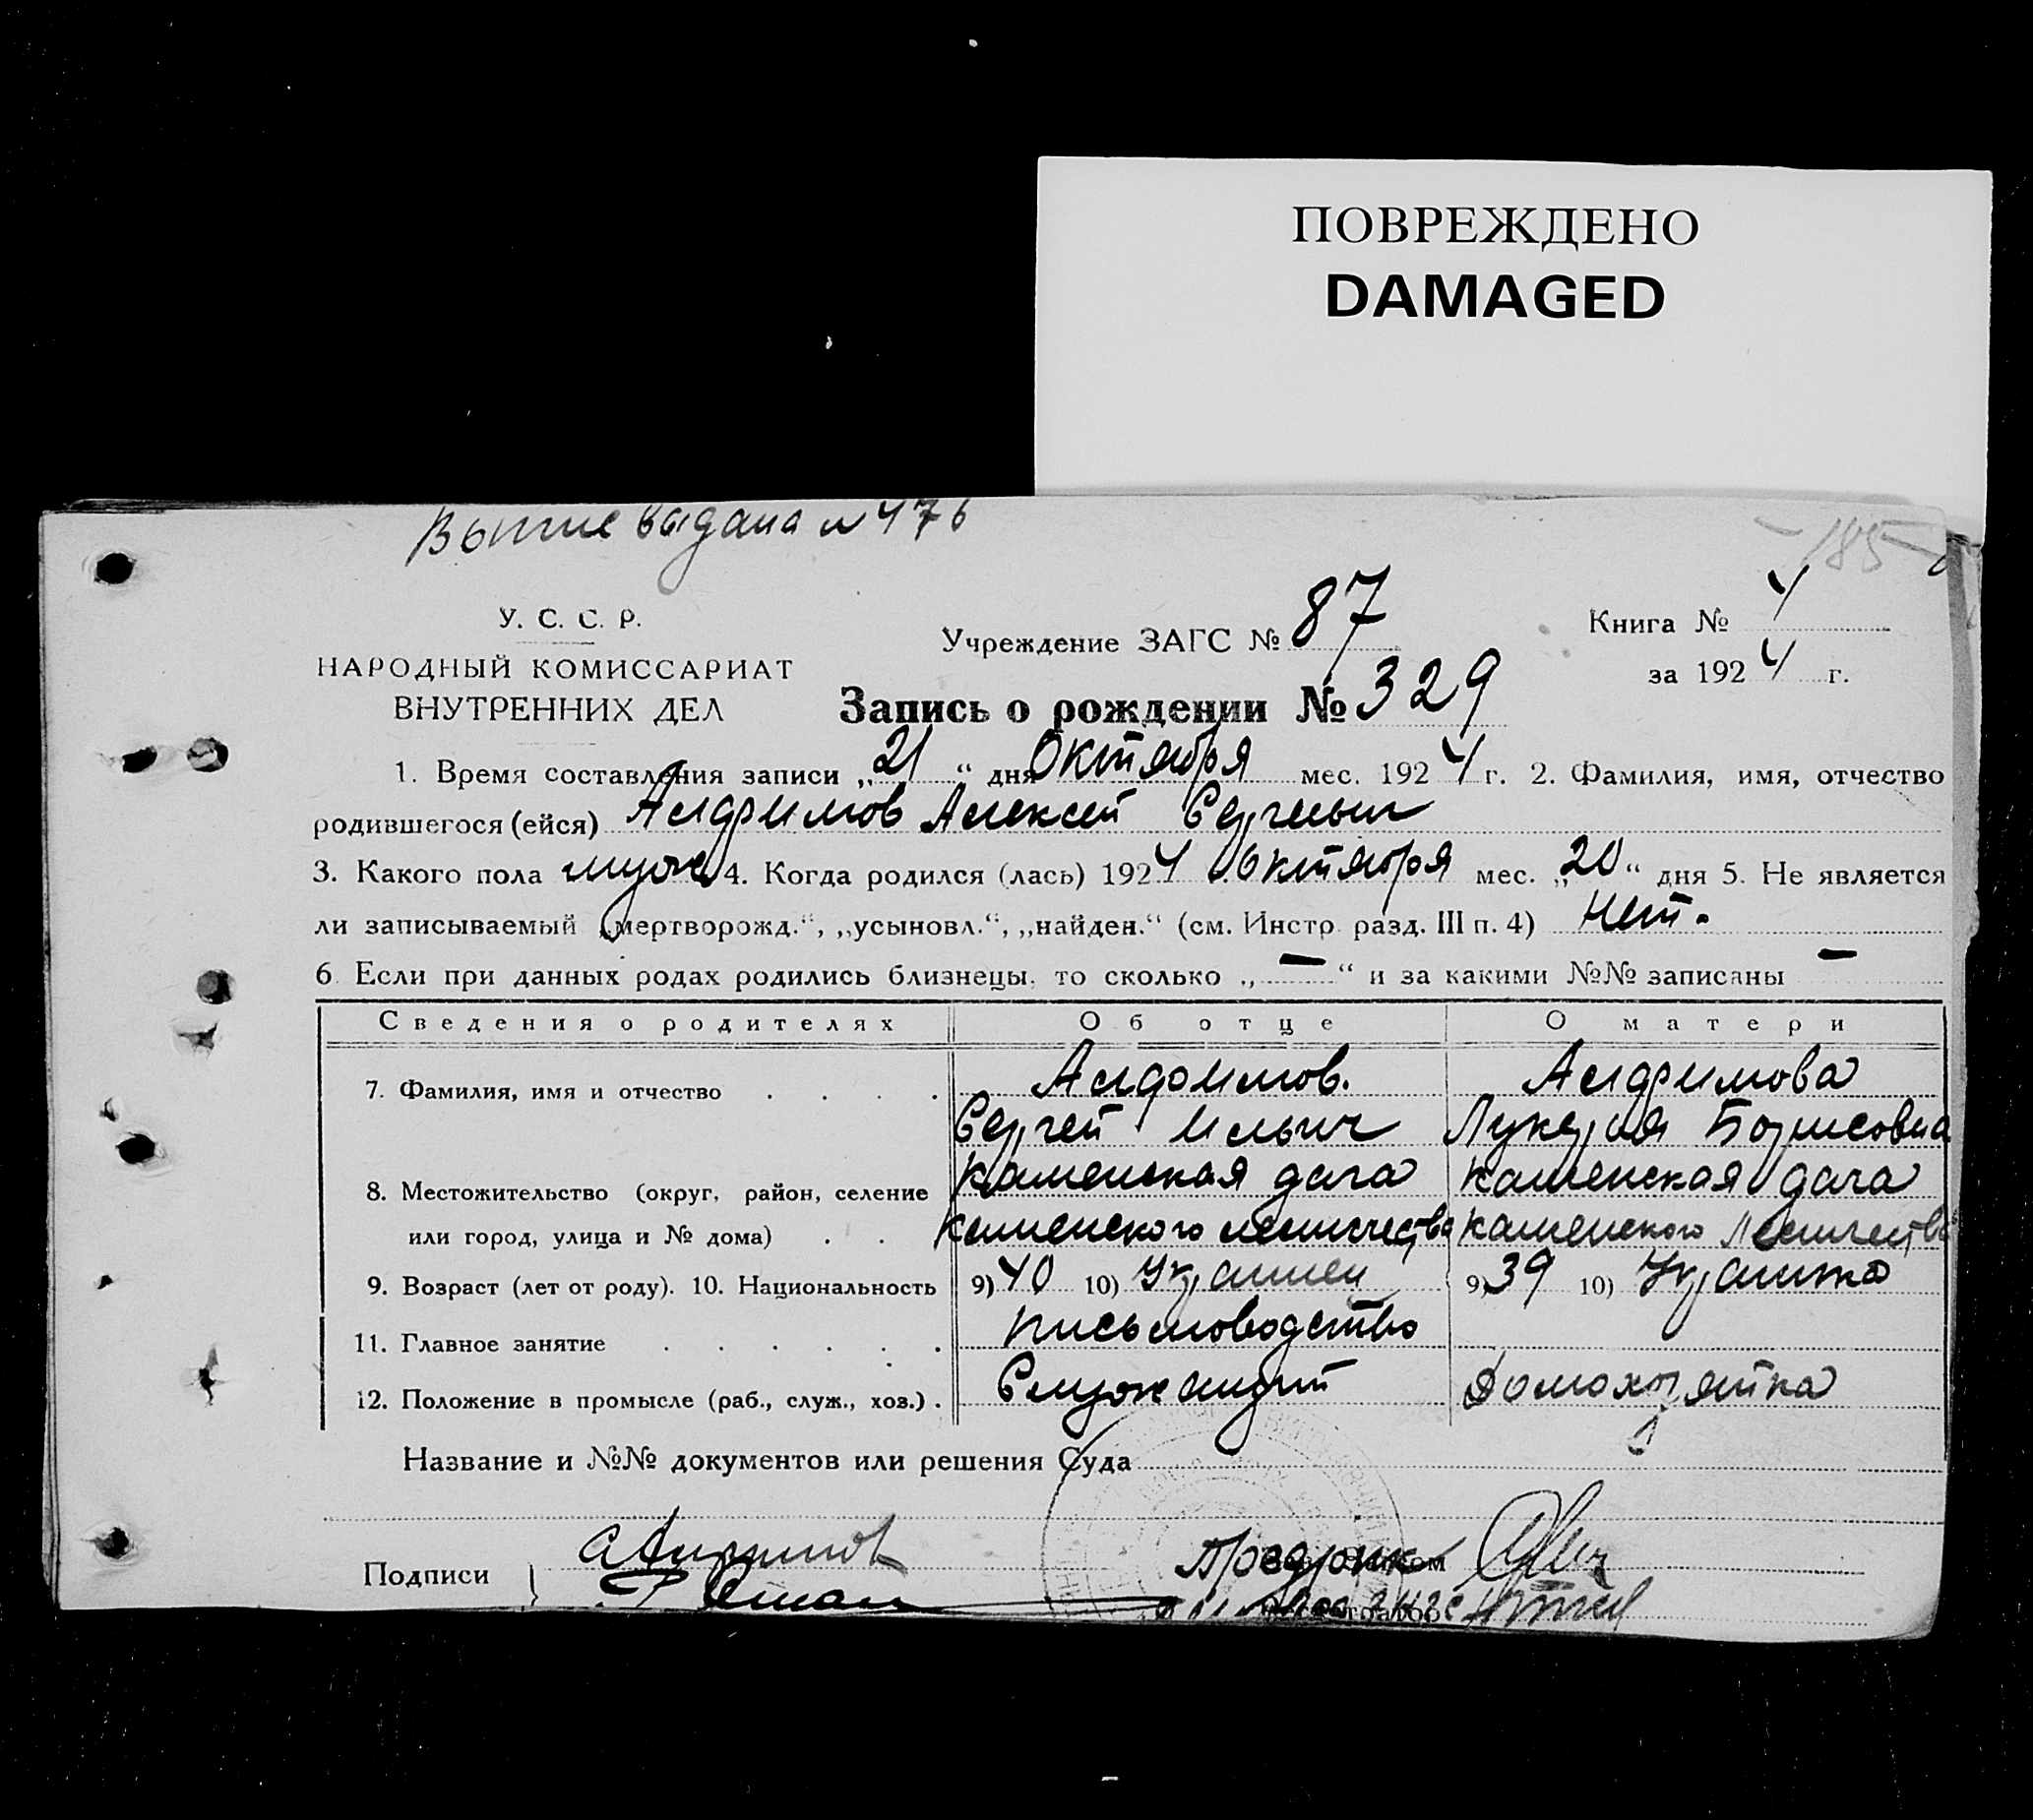 ПОВРЕЖДЕНО
DAMAGED
выдана № 476
185
У. С. С. Р.
НАРОДНЫЙ КОМИССАРИАТ
ВНУТРЕННИХ ДЕЛ
Учреждение ЗАГС № 87
Книга № 4
за 1924 г.
Запись о рождении № 329
1. Время составления записи „21“ дня Октября мес. 1924 г. 2. Фамилия, имя, отчество
родившегося (ейся) Алексей Сергеевич
3. Какого пола муж 4. Когда родился (лась) 1924 Октября мес. „20“ дня 5. Не является
ли записываемый „мертворожд.“, „усыновл.“, „найден.“ (см. Инстр. разд. III п. 4) Нет.
6. Если при данных родах родились близнецы, то сколько „—“ и за какими №№ записаны —
Сведения о родителях Об отце О матери
7. Фамилия, имя и отчество
Сергей Ильич Лукерия Борисовна
8. Местожительство (округ, район, селение Каменская дача Каменская дача
или город, улица и № дома) Каменского лесничества Каменского Лесничества
9. Возраст (лет от роду). 10. Национальность 9) 40 10) Украинец 9) 39 10) Украинка
11. Главное занятие письмоводство
12. Положение в промысле (раб., служ., хоз.) Служащий Домохозяйка
Название и №№ документов или решения Суда
Подписи